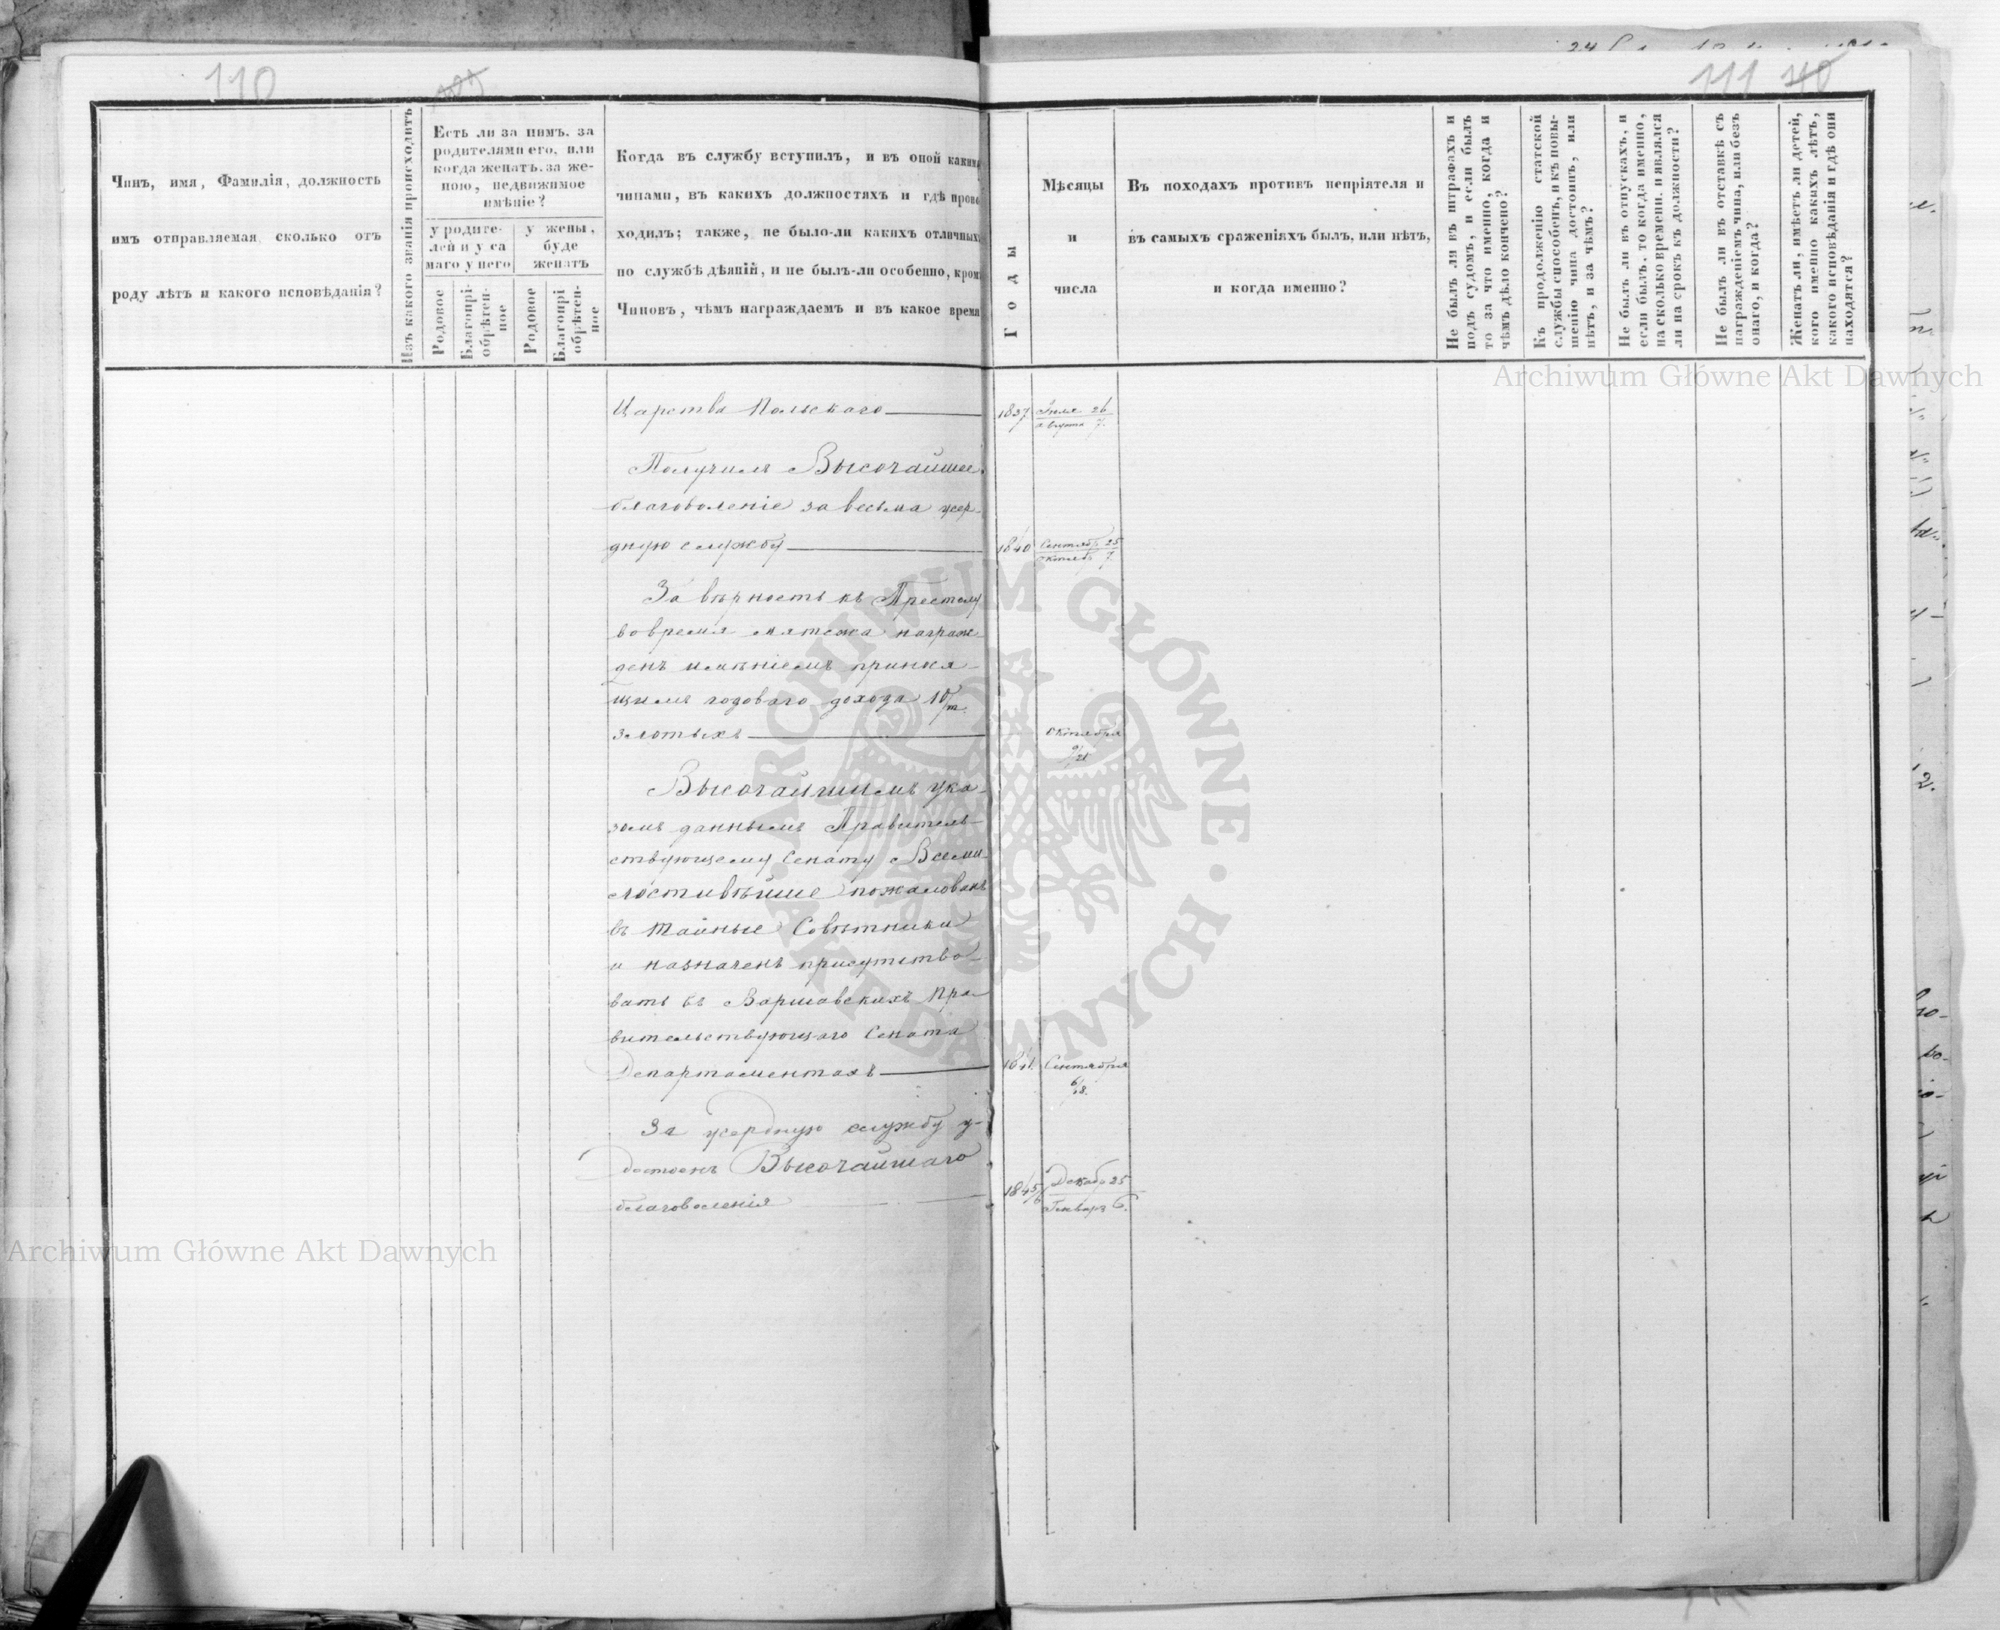 110
111
Чинъ, имя, Фамилія, должность
имъ отправляемая, сколько отъ
роду лѣтъ и какого исповѣданія?
Изъ какого званія происходитъ
Есть ли за нимъ, за
родителями его, или
когда женатъ, за же-
ною, недвижимое
имѣніе?
у родите-
лей и у са
маго у него
у жены,
буде
женатъ
Родовое
Благопрі-
обрѣтен-
ное
Родовое
Благопрі
обрѣтен-
ное
Когда въ службу вступилъ, и въ оной какими
чинами, въ какихъ должностяхъ и гдѣ прово
ходилъ; также, не было-ли какихъ отличныхъ
по службѣ дѣяній, и не былъ-ли особенно, кромѣ
Чиновъ, чѣмъ награждаемъ и въ какое время
Годы
Мѣсяцы
и
числа
Въ походахъ противъ непріятеля и
въ самыхъ сраженіяхъ былъ, или нѣтъ,
и когда именно?
Не былъ ли въ штрафахъ и
подъ судомъ, и если былъ
то за что именно, когда и
чѣмъ дѣло кончено?
Къ продолженію статской
службы способенъ, и къ повы-
шенію чина достоинъ, или
нѣтъ, и за чѣмъ?
Не былъ ли въ отпускахъ, и
если былъ, то когда именно,
на сколько времени, и являлся
ли на срокъ къ должности?
Не былъ ли въ отставкѣ съ
награжденіемъ чина, или безъ
онаго, и когда?
Женатъ ли, имѣетъ ли дѣтей,
кого именно какихъ лѣтъ,
какого исповѣданія и гдѣ они
находятся?
Царства Польскаго 1837 Іюля 26
Августа 7.
Получилъ Высочайшее
благоволеніе за весьма усер-
дную службу 1840 Сентябр 25
Октябр 7.
За вѣрность къ Престолу
во время мятежа награж-
денъ имѣніемъ принося-
щимъ годоваго дохода 10/т.
злотыхъ Октября
9/21
Высочайшимъ ука-
зомъ даннымъ Правитель-
ствующему Сенату Всеми-
лостивѣйше пожалованъ
въ Тайные Совѣтники
и назначенъ присутство-
вать въ Варшавскихъ Пра-
вительствующаго Сената
Департаментахъ 1841. Сентября
6/18.
За усердную службу у-
достоенъ Высочайшаго
благоволенія 1845/6 Декабр 25
Генваря 6.
Archiwum Główne Akt Dawnych
Archiwum Główne Akt Dawnych
ARCHIWUM GŁÓWNE · AKT DAWNYCH ·